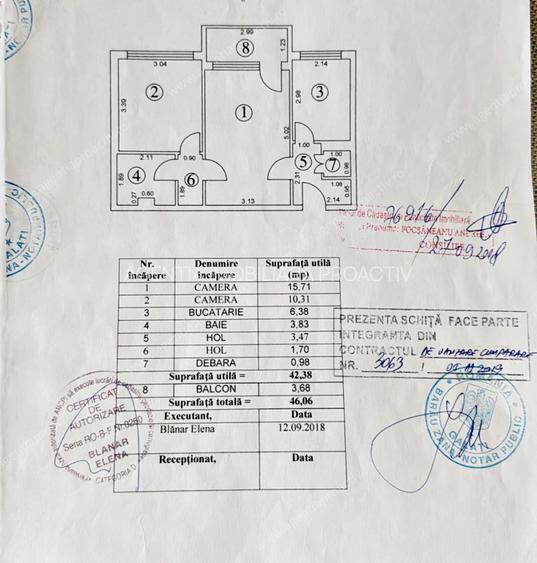 2.99
1.23
8
3.04
2.14
2
3.39
1
2.98
3
5.02
1.00
2.11
0.90
5
1.00
7
0.98
4
1.89
6
1.89
2.31
1.08
0.95
0.27
0.60
3.13
2.14
CONSILIER
27.09.2018
Nr. încăpere Denumire încăpere Suprafaţă utilă (mp)
1 CAMERA 15,71
2 CAMERA 10,31
3 BUCATARIE 6,38
4 BAIE 3,83
5 HOL 3,47
6 HOL 1,70
7 DEBARA 0,98
Suprafaţă utilă = 42,38
8 BALCON 3,68
Suprafaţă totală = 46,06
Executant, Data
Blănar Elena 12.09.2018
Recepţionat, Data
PREZENTA SCHIŢĂ FACE PARTE
INTEGRANTA DIN
CONTRACTUL DE VANZARE CUMPARARE
NR. 3063 /
CERTIFICAT
DE
AUTORIZARE
BLANAR
ELENA
CATEGORIA D
ROMANIA
NOTAR PUBLIC
GALATI